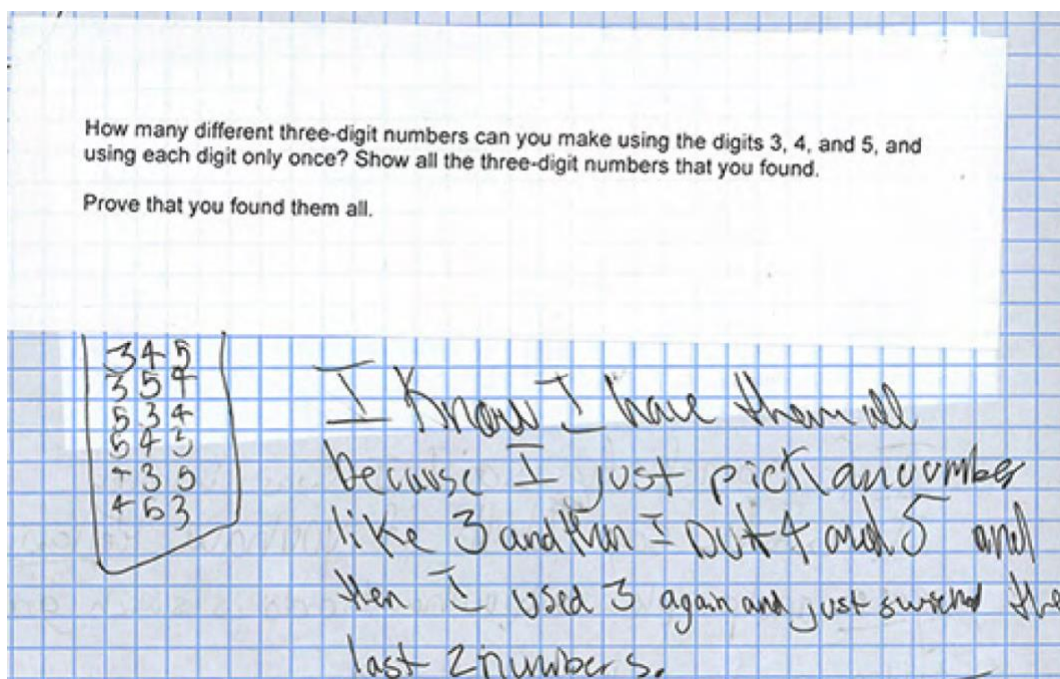 How many different three-digit numbers can you make using the digits 3, 4, and 5, and
using each digit only once? Show all the three-digit numbers that you found.
Prove that you found them all.
345
354
534
543
435
453
I Know I have them all
because I just pick a number
like 3 and then I put 4 and 5 and
then I used 3 again and just switched the
last 2 numbers.